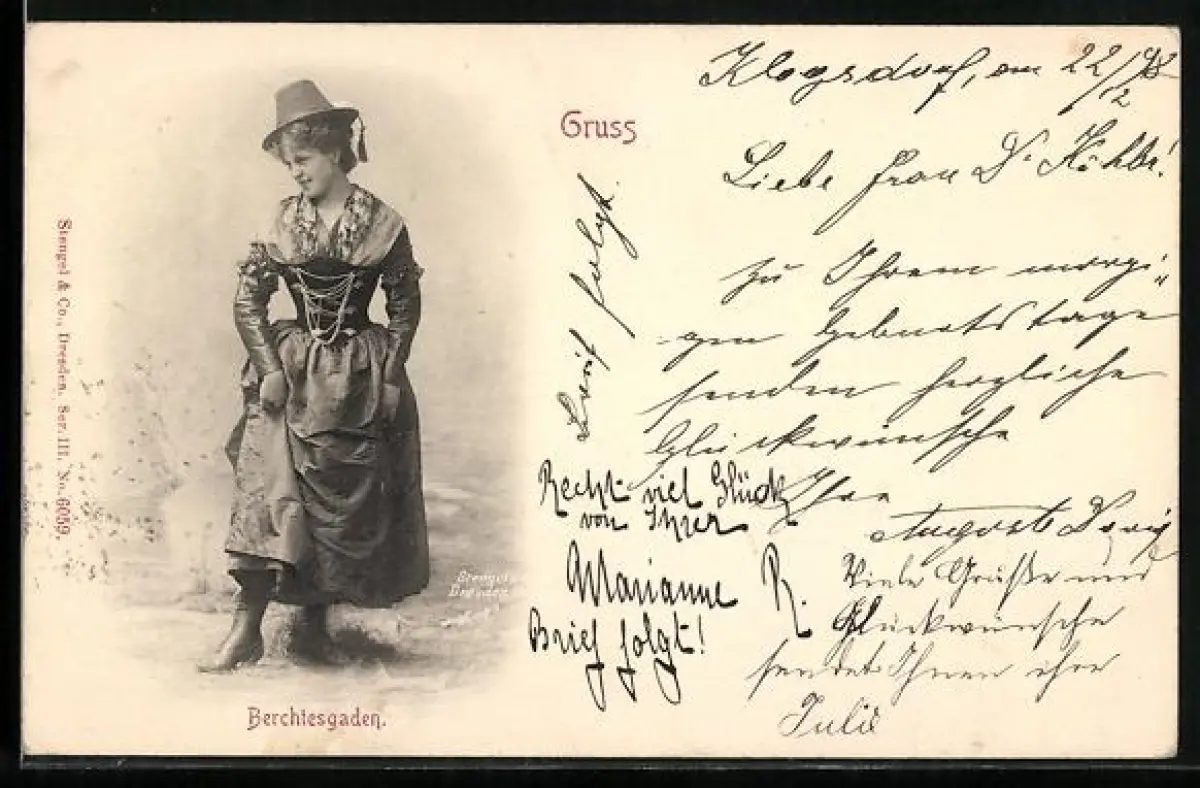 Stengel & Co., Dresden. Ser. III. No. 6059.
Gruss
Berchtesgaden.
Stengel
Dresden
Klogsdorf, am 22/12
Liebe Frau Dr
zu Ihrem morgi-
gen Geburtstage
senden herzliche
Glückwünsche
Ihre
Auguste
Brief folgt.
Recht viel Glück
von Ihrer
Marianne R.
Brief folgt!
Viele Grüße und
Glückwünsche
sendet Ihnen ihre
Julie